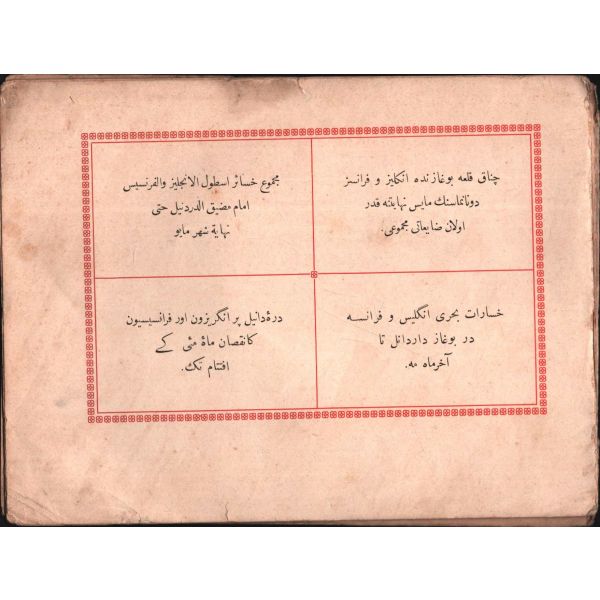 چناق قلعه بوغازنده انكليز و فرانسز
دونانماسنك مايس نهايتنه قدر
اولان ضايعاتى مجموعى.
مجموع خسائر اسطول الانجليز والفرنسيس
امام مضيق الدردنيل حتى
نهاية شهر مايو
خسارات بحرى انگليس و فرانسه
در بوغاز داردانل تا
آخرماه مه.
درۀدانيل پر انگريزون اور فرانسيسيون
كا نقصان ماۀ مئى كے
افتتام تك.